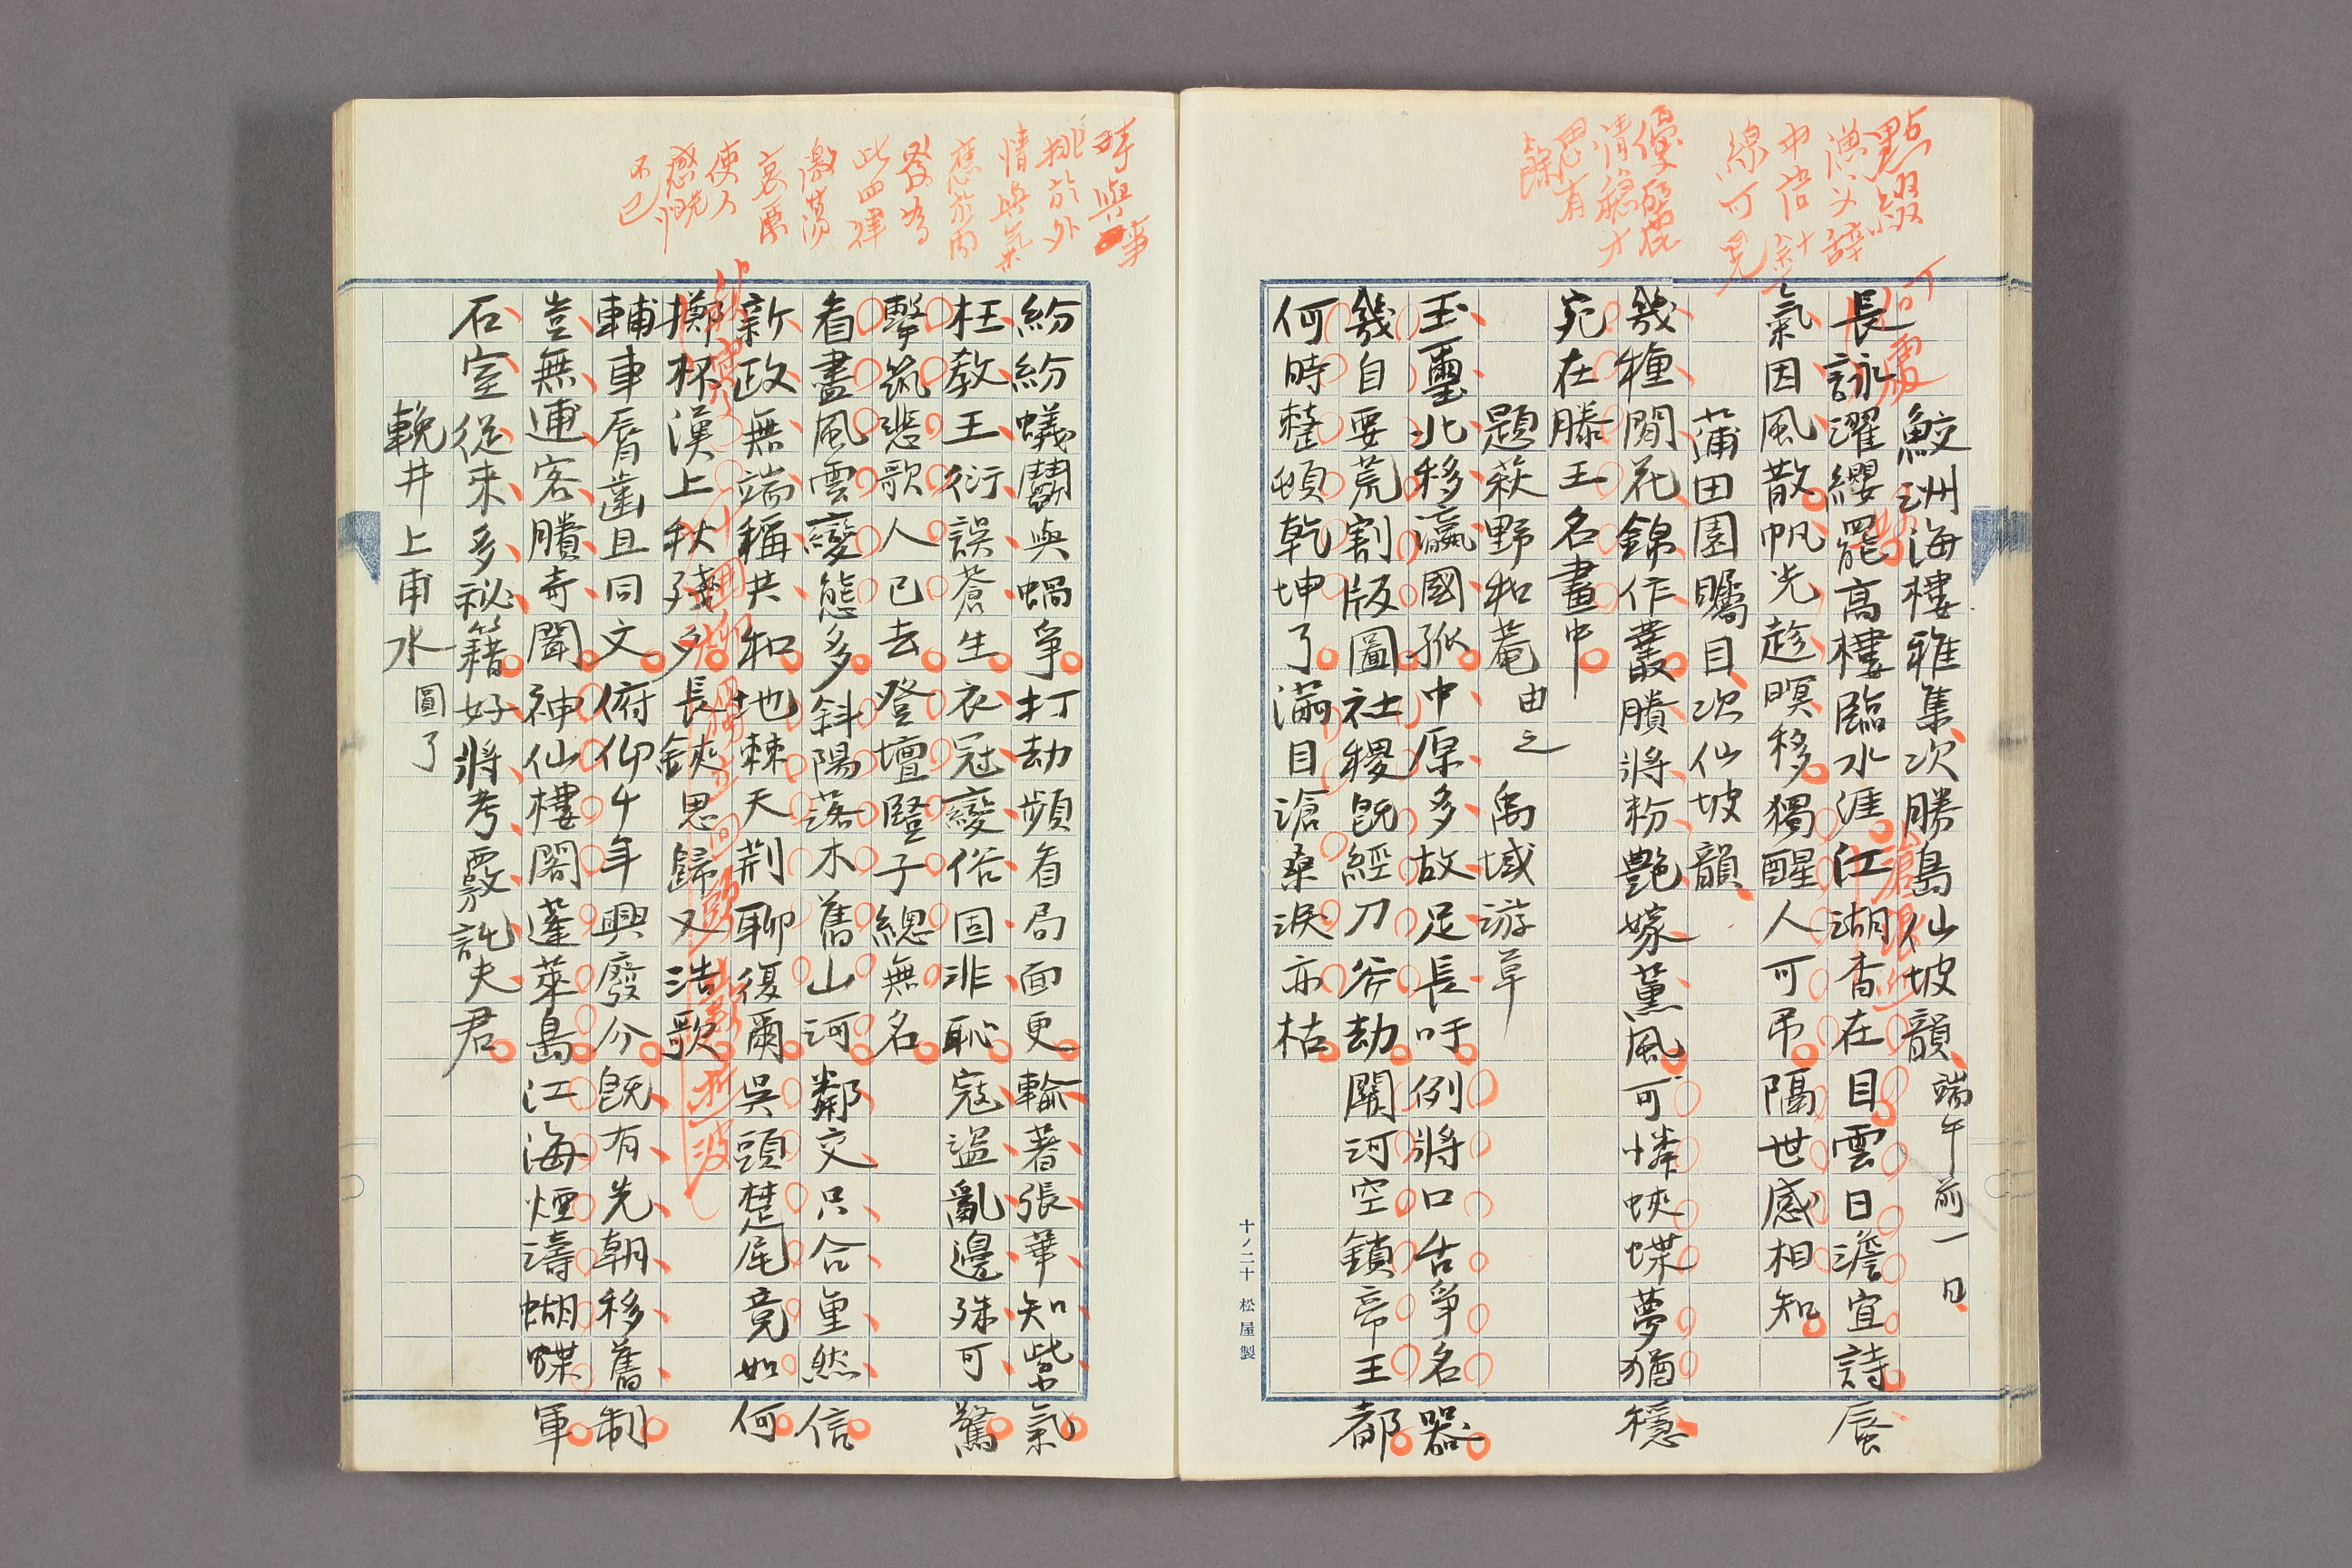 點綴
漁父辞
中倍針
線可見
鮫洲海樓雅集次勝島仙坡韻 端午前一日
長詠濯纓罷高樓臨水涯江湖杳在目雲日澹宜詩蜃
氣因風散帆光趁暝移獨醒人可弔隔世感相知
蒲田園矚目次仙坡韻
優麗
清穩才
思有
餘
幾種閒花錦作叢賸將粉艷嫁薰風可憐蛺蝶夢猶穩
宛在滕王名畫中
題萩野和菴由之 禹域游草
玉璽北移瀛國孤中原多故足長吁例將口舌爭名器
幾自要荒割版圖社稷既經刀斧劫關河空鎖帝王都
何時整頓乾坤了滿目滄桑淚亦枯
十ノ二十 松屋製
時與事
挑於外
情與氣
應於內
發為
此四律
激蕩
哀厲
使人
感慨
不已
紛紛蟻鬪與蝸爭打劫頻看局面更輪著張華知紫氣
枉教王衍誤蒼生衣冠變俗固非恥寇盜亂邊殊可驚
擊筑悲歌人已去登壇豎子總無名
看盡風雲變態多斜陽落木舊山河鄰交只合重然信
新政無端稱共和地棘天荊聊復爾吳頭楚尾竟如何
擲杯漢上秋殘夕長鋏思歸又浩歌
輔車脣齒且同文俯仰千年興廢分既有先朝移舊制
豈無逋客賸奇聞神仙樓閣蓬萊島江海煙濤蝴蝶軍
石室從來多祕籍好將考覈託夫君
輓井上甫水 圓了